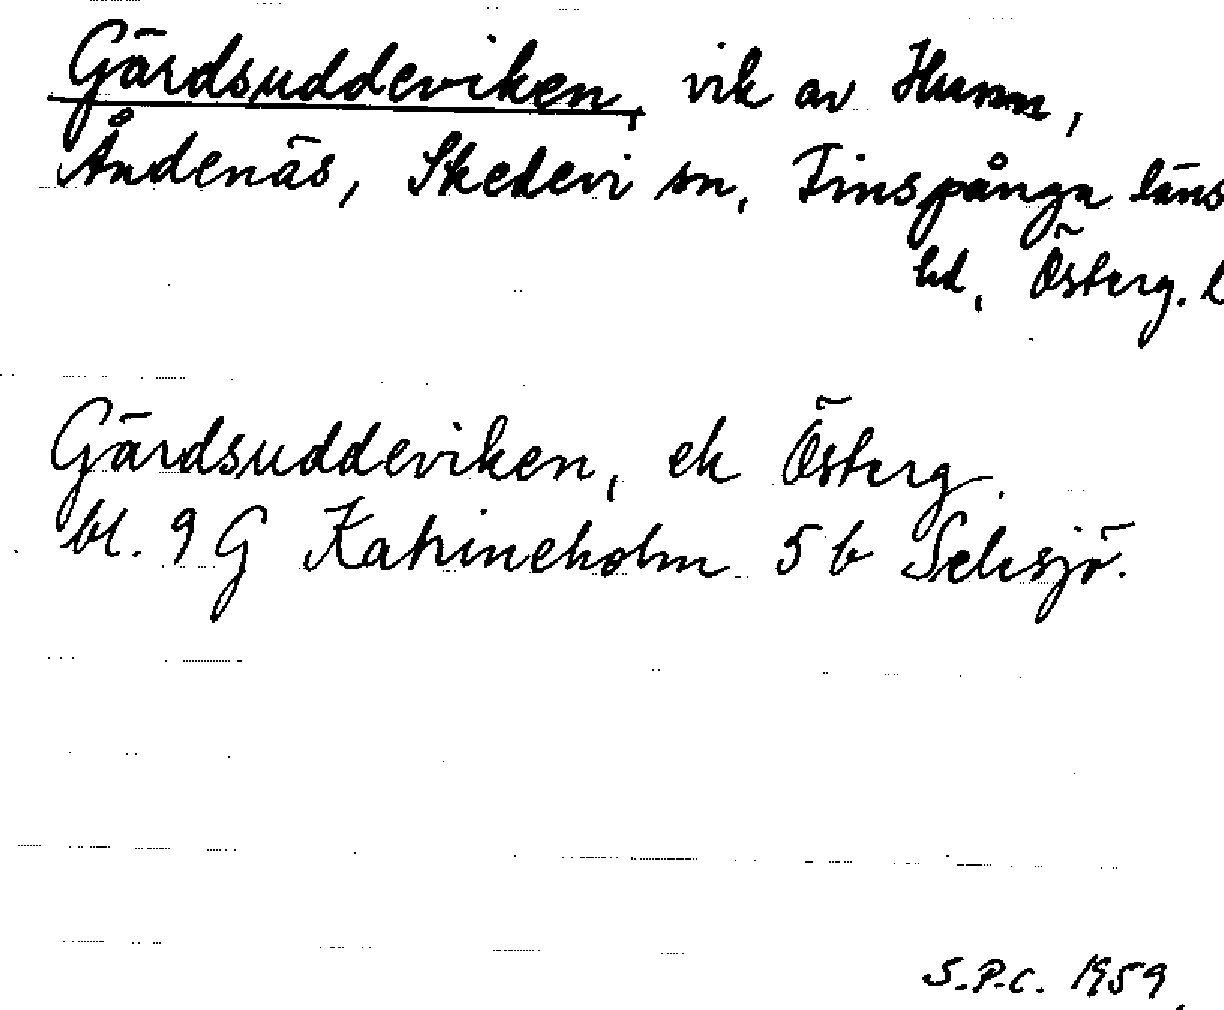 Gärdsuddeviken, vik av Hunn,
Åndenäs, Skedevi sn, Finspånga läns
hd, Österg. l
Gärdsuddeviken, ek Österg.
bl. 9 G Katrineholm 5 b
S.P.C. 1959.